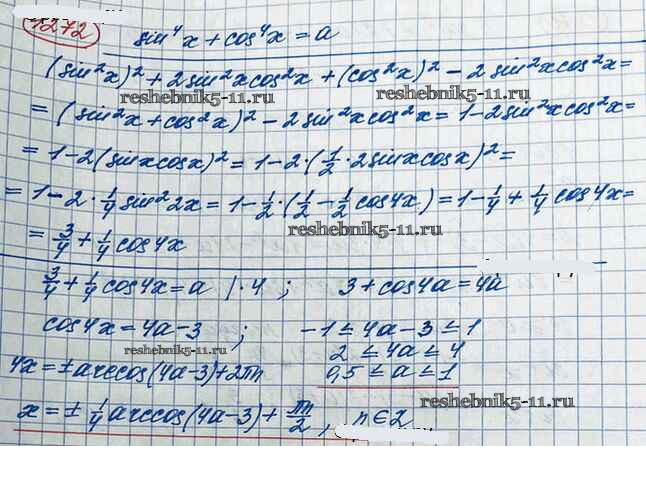 1272
sin⁴x + cos⁴x = a
(sin²x)² + 2sin²xcos²x + (cos²x)² − 2sin²xcos²x =
reshebnik5-11.ru reshebnik5-11.ru
= (sin²x + cos²x)² − 2sin²xcos²x = 1 − 2sin²xcos²x =
= 1 − 2(sinxcosx)² = 1 − 2·(1/2·2sinxcosx)² =
= 1 − 2·1/4 sin²2x = 1 − 1/2·(1/2 − 1/2 cos4x) = 1 − 1/4 + 1/4 cos4x =
reshebnik5-11.ru
= 3/4 + 1/4 cos4x
3/4 + 1/4 cos4x = a |·4 ; 3 + cos4a = 4a
cos4x = 4a−3 ; −1 ≤ 4a−3 ≤ 1
reshebnik5-11.ru 2 ≤ 4a ≤ 4
4x = ± arccos(4a−3) + 2πn 0,5 ≤ a ≤ 1
reshebnik5-11.ru
x = ± 1/4 arccos(4a−3) + πn/2 , n ∈ Z